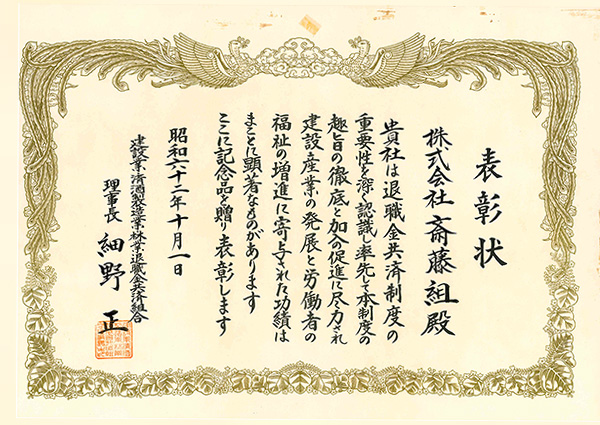 表彰状
株式会社斎藤組殿
貴社は退職金共済制度の
重要性を深く認識し率先して本制度の
趣旨の徹底と加入の促進に尽力され
建設産業の発展と労働者の
福祉の増進に寄与された功績は
まことに顕著なものがあります
ここに記念品を贈り表彰します
昭和六十二年十月一日
建設業・清酒製造業・林業退職金共済組合
理事長 細野正